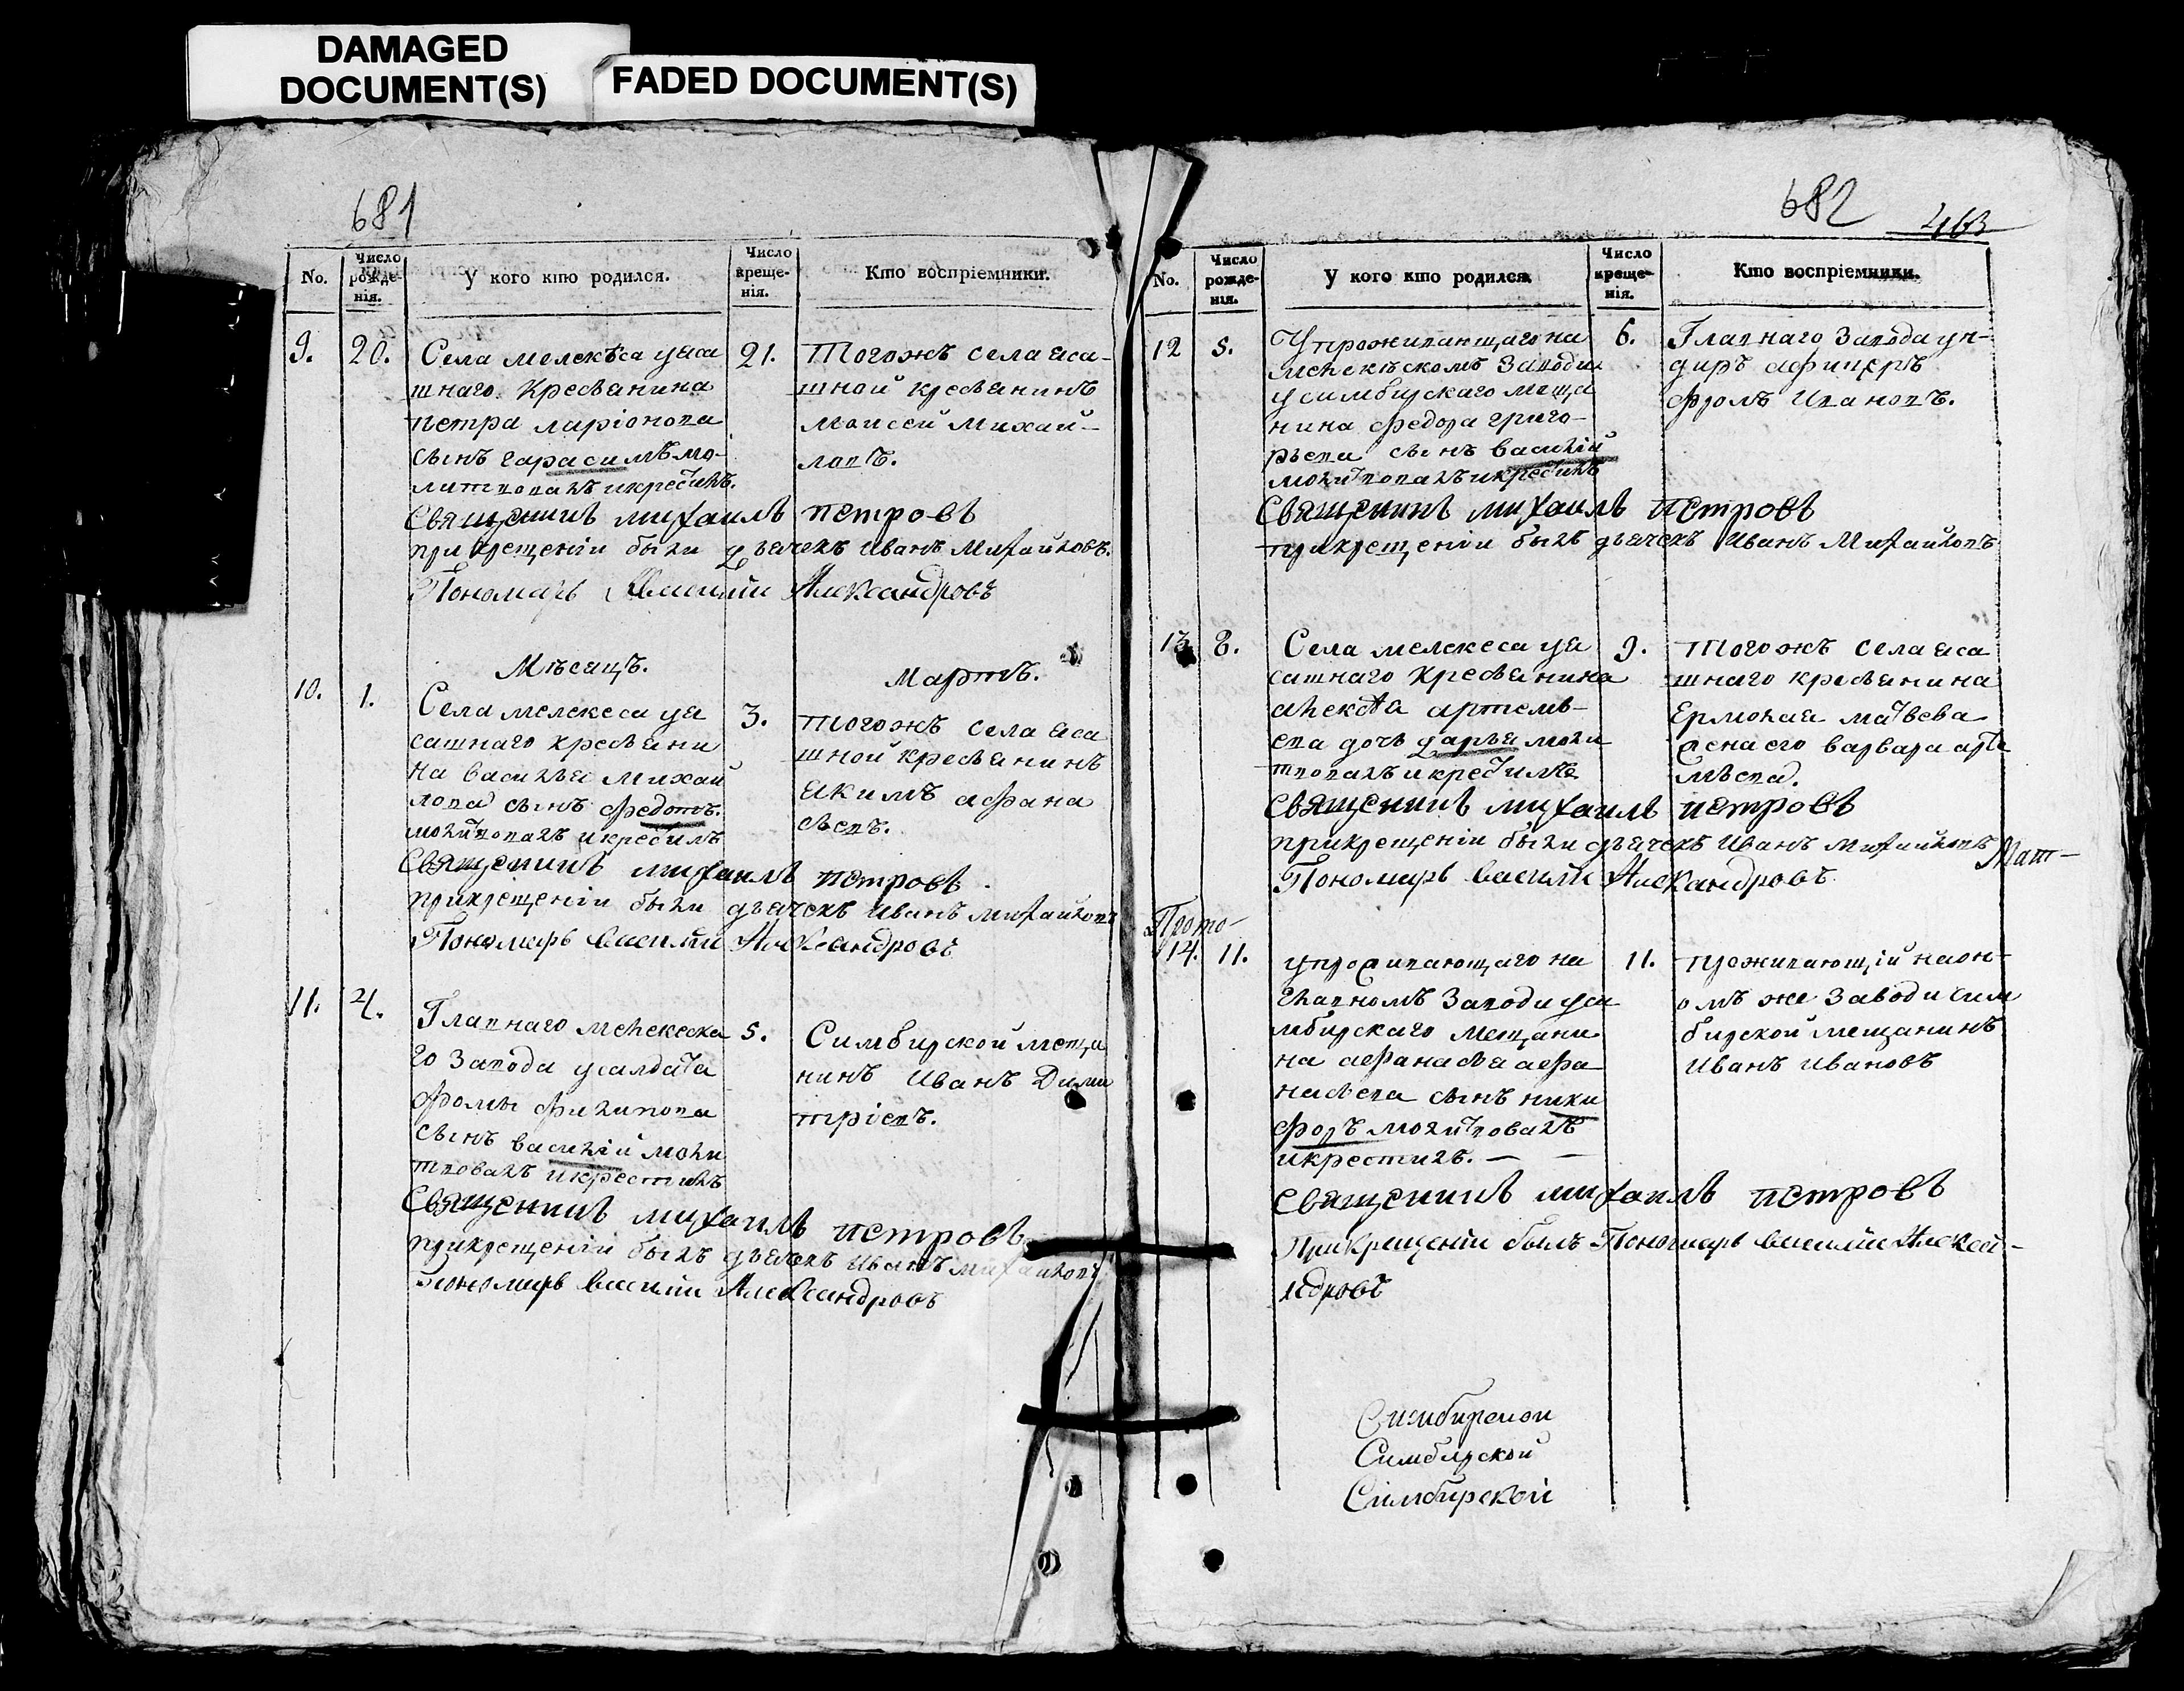 DAMAGED
DOCUMENT(S)
FADED DOCUMENT(S)
681
No.
Число рожденія.
У кого кто родился.
Число крещенія.
Кто воспріемники.
9.
20.
Села мелекѣса уяса
шнаго. Кресьянина
петра ларіонова
сынъ гарасимъ мо-
литвовалъ икрестилъ.
21.
Тогожъ села яса-
шной кресьянинъ
Моисей Михай-
ловъ.
Священникъ михаилъ петровъ
при крещеніи были дьячекъ Иванъ Михайловъ.
Пономарь Василий Александровъ
Мѣсяцъ.
Мартъ.
10.
1.
Села мелекеса уя
сашнаго кресьяни
на василья михай
лова сынъ федотъ.
молитвовалъ икрестилъ
3.
тогожъ села яса
шной кресьянинъ
Якимъ афана
сьевъ.
Священникъ михаилъ петровъ
прикрещеніи были дьячекъ Иванъ михайловъ
Пономарь Василий Александровъ
11.
4.
Главнаго мелекеска
го Завода усалдата
фомы филипова
сынъ василій моли
твовалъ икрестилъ
5.
Симбирской меща
нинъ Иванъ Дими
тріевъ.
Священникъ михаилъ петровъ
прикрещеніи былъ дьячекъ Иванъ михайловъ
Пономарь Василий Александровъ
682
463
No.
Число рожденія.
У кого кто родился
Число крещенія.
Кто воспріемники.
12
5.
Упроживающаго на
мелекѣскомъ Заводи
усимбирскаго меща
нина федора григо-
рьева сынъ василій
молитвовалъ икрестилъ
6.
Главнаго Завода ун-
диръ афицеръ
фромъ Ивановъ.
Священникъ михаилъ петровъ
прикрещеніи былъ дьячекъ Иванъ Михайловъ
13
8.
Села мелекеса уя
сашнаго Кресьянина
алексѣя артемь-
ева дочь дарья моли
твовалъ икрестилъ
9.
Тогожъ села яса
шнаго кресьянина
Ермолая матвева
жена его варвара арте
мьева.
Священникъ михаилъ петровъ
прикрещеніи были дьячекъ Иванъ михайловъ
Мат-
Пономарь василий Александровъ
Прото-
14.
11.
упроживающаго на
главномъ Заводи уси
мбирскаго мещани
на афанасья афа
насьева сынъ ники
форъ молитвовалъ
икрестилъ. —
11.
проживающій наон-
омъ же Заводи сим
бирской мещанинъ
Иванъ Ивановъ
Священникъ михаилъ петровъ
Прикрещеніи былъ Пономарь василий Алексей-
ндровъ
Симбирской
Симбирской
Симбирской